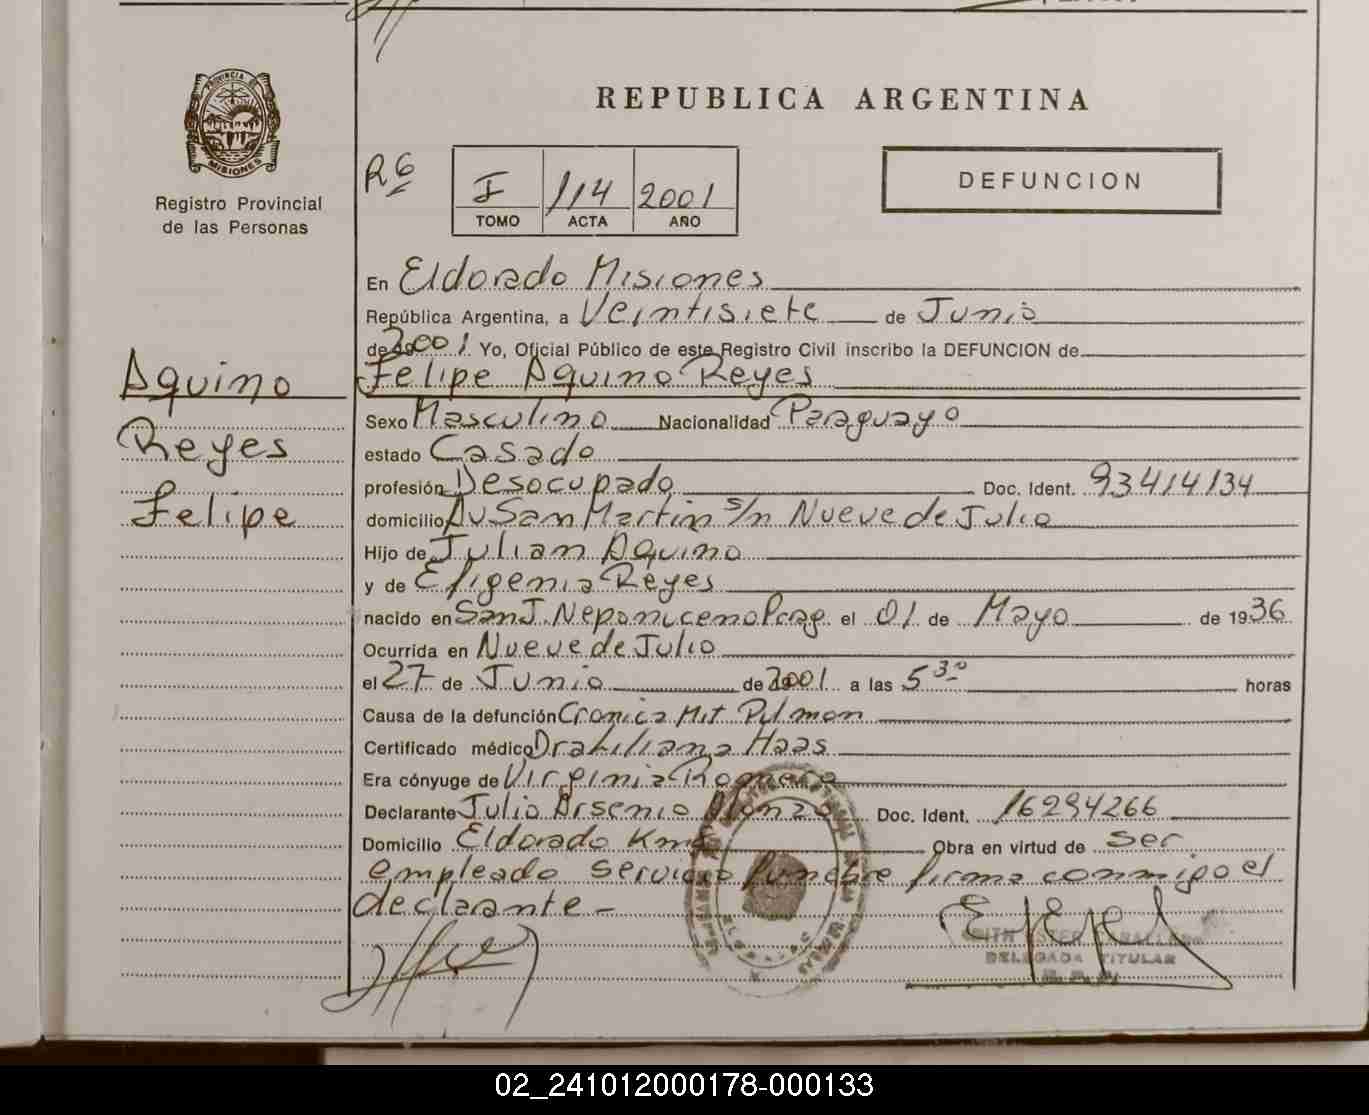 PROVINCIA DE
MISIONES
Registro Provincial
de las Personas
REPUBLICA ARGENTINA
R6
I 114 2001
TOMO ACTA AÑO
DEFUNCION
En Eldorado Misiones
República Argentina, a Veintisiete de Junio
de 2001. Yo, Oficial Público de este Registro Civil inscribo la DEFUNCION de
Felipe Aquino Reyes
Aquino
Reyes
Felipe
Sexo Masculino Nacionalidad Paraguayo
estado Casado
profesión Desocupado Doc. Ident. 93414134
domicilio Av San Martin s/n Nueve de Julio
Hijo de Julian Aquino
y de Efigenia Reyes
nacido en San J. Neponuceno Parag. el 01 de Mayo de 1936
Ocurrida en Nueve de Julio
el 27 de Junio de 2001 a las 5 30 horas
Causa de la defunción Cronica Mit Pulmon
Certificado médico Dra Liliana Haas
Era cónyuge de Virginia Romero
Declarante Julio Arsenio Alonzo Doc. Ident. 16294266
Domicilio Eldorado Km8 Obra en virtud de ser
empleado servicio funebre firma conmigo el
declarante -
DELEGADA TITULAR
02_241012000178-000133